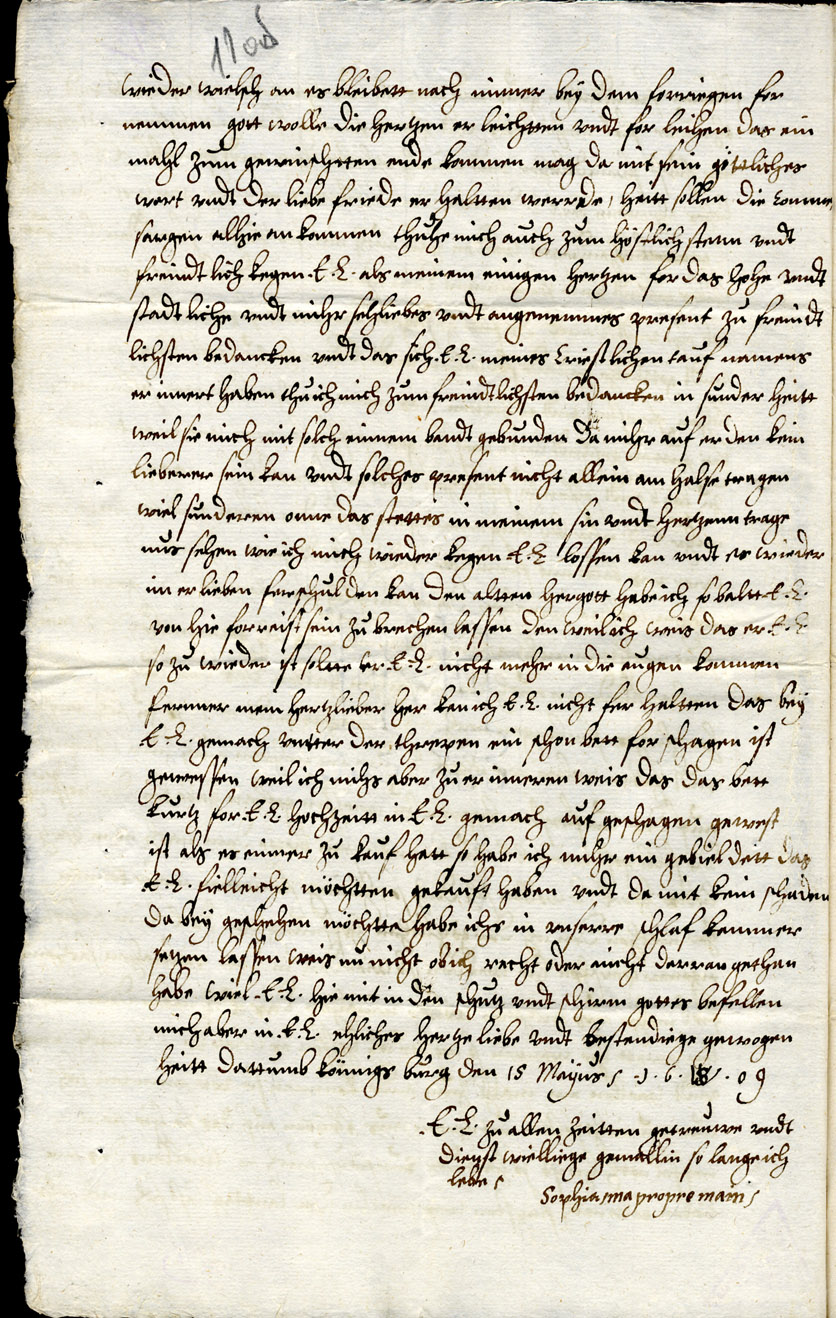 1708
wieder wielsch an es bleibett nach immer bey dem forriegen for
nemmen gott wolle die hertzen er leichtten undt for leihen das ein
mahl zum gewinschtten ende kommen mag da mit sein göttliches
wort undt der liebe friede er haltten werrde, heitt sollen die
alhie an kommen thuhe mich auch zum höstlichstenn undt
freindt lich kegen E. L. als meinem einigen hertzen for das hohe undt
stadtliche undt mihr sehliebes undt angenemmes present zu freindt
lichsten bedancken undt das sich E. L. meines Criestlichen tauf namens
er innert haben thu ich mich zum freindtlichsten bedancken in sunder heitt
weil sie mich mit solch einnem bandt gebunden da mihr auf erden kein
lieberer sein kan undt solches present nicht allein am halse tragen
wiel sunderen onne das stettes in meinem sin undt hertzenn trage
mus sehen wie ich mich wieder kegen E. L. lossen kan undt es wieder
im er lieben ferschulden kan den altten hergott habe ich so baltt E. L.
von hie forreist sein zu brechen lassen den weil ich weis das er E. L.
so zu wieder ist soltte er E. L. nicht mehr in die augen kommen
fernner mein hertzlieber her kan ich E. L. nicht fer haltten das bey
E. L. gemach untter der threpen ein schon bett for schagen ist
gewessen weil ich mihs aber zu er inneren weis das das bett
kurtz for E. L. hochzeitt in E. L. gemach auf geschagen gewest
ist als es eimer zu kauf hatt so habe ich mihr ein gebieldett das
E. L. fielleicht möchtten gekauft haben undt da mit kein schaden
da bey geschehen möchtte habe ichs in unserre schlaf kammer
setzen lassen weis nu nicht ob ich recht oder nicht darran gethan
habe wiel E. L. hie mit in den schutz undt schirm gottes befellen
mich aber in E. L. ehliches hertze liebe undt bestendiege gewogen
heitt dattumb könnigs burg den 15 Mayus 1609
E. L. zu allen zeitten getreuwe undt
dienst wielliege gemallin so lange ich
lebe
Sophia ma propre main